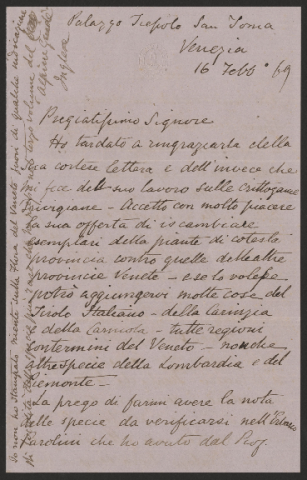 Palazzo Tiepolo San Toma
Venezia
16 Febb° 69
Pregiatissimo Signore
Ho tardato a ringraziarla della
sua cortese lettera e dell'
fece del suo lavoro sulle crittogame
Trivigiane - Accetto con molto piacere
la sua offerta di iscambiare
esemplari della piante di cotesta
provincia contro quelle delle altre
provincie Venete - e se lo volesse
potrò aggiungervi molte cose del
Tirolo Italiano - della Carinzia
e della Carniola - tutte regioni
contermini del Veneto - nonche
altre specie della Lombardia e del
Piemonte -
La prego di farmi avere la nota
delle specie da verificarsi nell'Erbario
Parolini che ho avuto dal Prof.
Io non ho stampato niente sulla Flora del Veneto fuori di qualche indicazione
nel terzo volume del
Inglese